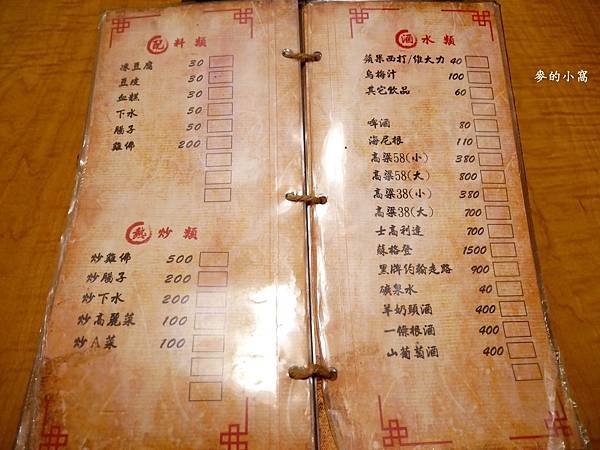 配料類
凍豆腐 30
豆皮 30
血糕 30
下水 50
腸子 50
雞佛 200
熱炒類
炒雞佛 500
炒腸子 200
炒下水 200
炒高麗菜 100
炒A菜 100
酒水類
蘋果西打/維大力 40
烏梅汁 100
其它飲品 60
啤酒 80
海尼根 110
高梁58(小) 380
高梁58(大) 800
高梁38(小) 380
高梁38(大) 700
士高利達 700
蘇格登 1500
黑牌約翰走路 900
礦泉水 40
羊奶頭酒 400
一條根酒 400
山葡萄酒 400
麥的小窩